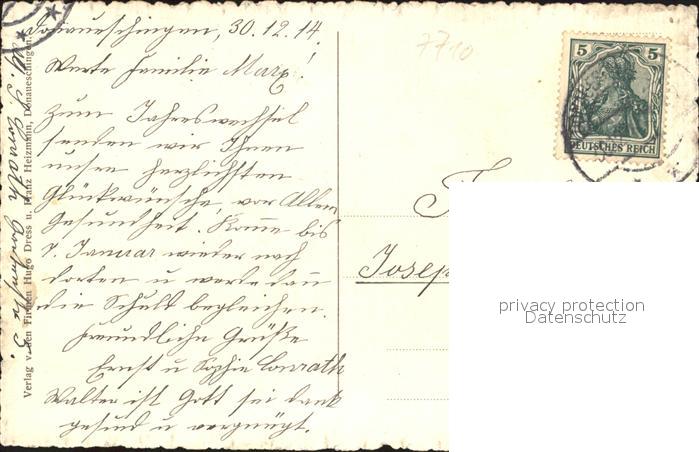 Donaueschingen, 30.12.14
Werte Familie Marx!
Zum Jahreswechsel
senden wir Ihnen
unsere herzlichsten
Glückwünsche, vor Allem
Gesundheit. Komme bis
7. Januar wieder nach
dorten u werde dann
die Schuld begleichen.
Freundliche Grüße
Ernst u Sophie Conrath
Walter ist Gott sei dank
gesund u vergnügt.
Verlag v. den Firmen Hugo Dress u. Franz Heizmann, Donaueschingen.
Conrath
7710
5 5
DEUTSCHES REICH
Josep
privacy protection
Datenschutz